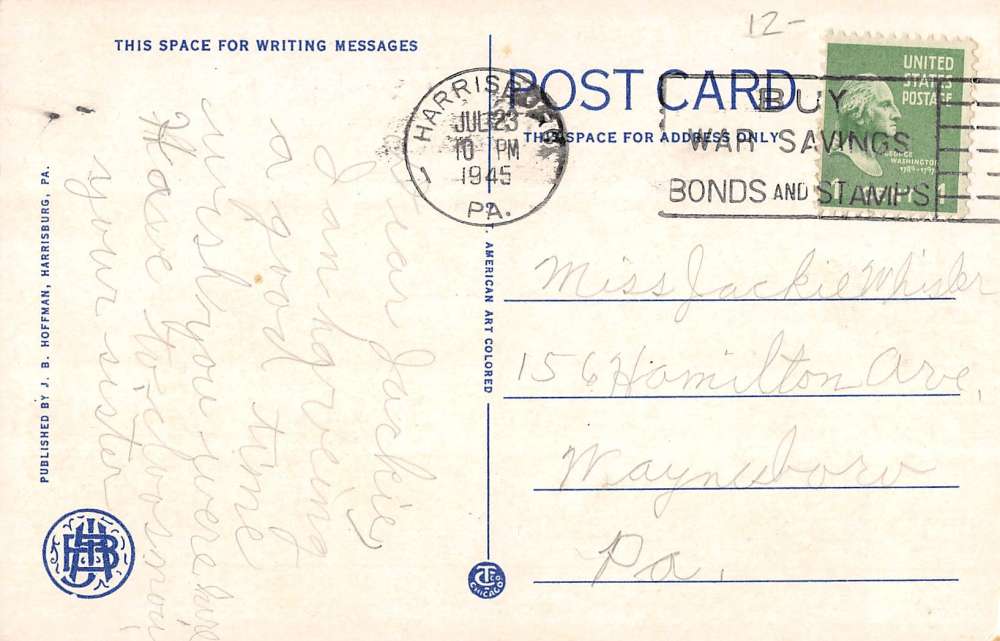 12-
THIS SPACE FOR WRITING MESSAGES
POST CARD
THIS SPACE FOR ADDRESS ONLY
HARRISBURG
JUL 23
10 PM
1945
PA.
1
BUY
WAR SAVINGS
BONDS AND STAMPS
UNITED
STATES
POSTAGE
GEORGE
WASHINGTON
1789-1797
1 CENT 1
Dear Jackie,
I am haveing
a good time
wish you were here
Have to close now
your sister
Miss Jackie Whisler
156 Hamilton Ave,
Waynesboro
Pa.
PUBLISHED BY J. B. HOFFMAN, HARRISBURG, PA.
C. T. AMERICAN ART COLORED
JBH
CT CO
CHICAGO